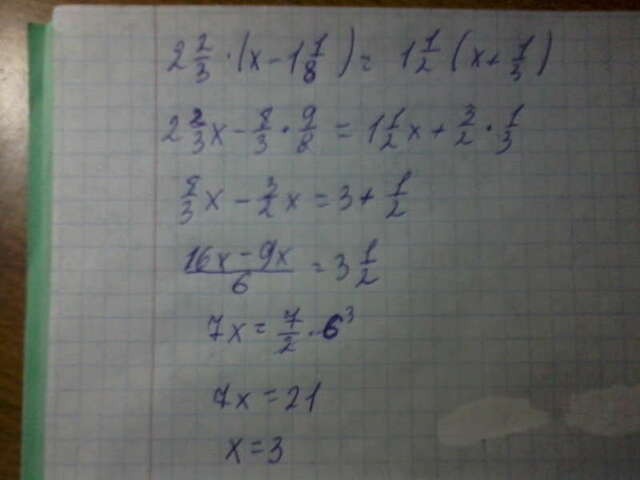 2 2/3 · (x - 1 1/8) = 1 1/2 (x + 1/3)
2 2/3 x - 8/3 · 9/8 = 1 1/2 x + 3/2 · 1/3
8/3 x - 3/2 x = 3 + 1/2
(16x - 9x)/6 = 3 1/2
7x = 7/2 · 6³
7x = 21
x = 3